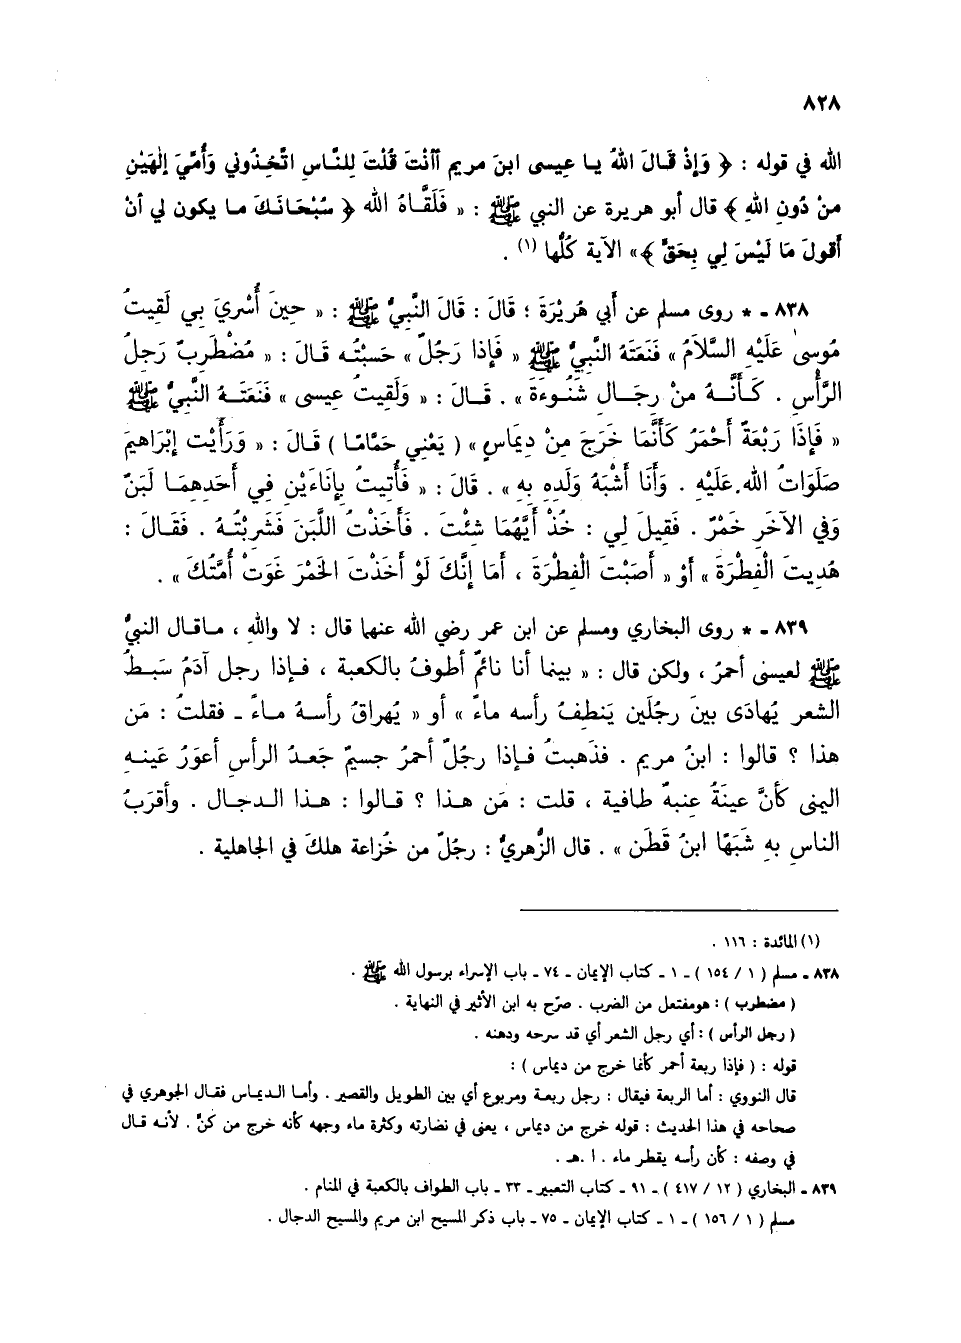 ٨٢٨
الله في قوله : ﴿ وَإِذْ قَالَ اللهُ يا عِيسى ابنَ مريم أأنْتَ قُلْتَ لِلنَّاسِ اتَّخِذُوني وَأُمِّيَ إلٰهَيْنِ
مِنْ دُونِ اللهِ ﴾ قال أبو هريرة عن النبي ﷺ : « فَلَقَّاهُ الله ﴿ سُبْحَانَكَ ما يكون لي أنْ
أقولَ مَا لَيْسَ لِي بِحَقٍّ ﴾» الآية كُلُّها (١) .
٨٣٨ - * روى مسلم عن أبي هُرَيْرَةَ ؛ قَالَ : قَالَ النَّبِيُّ ﷺ : « حِينَ أُسْرِيَ بِي لَقِيتُ
مُوسىٰ عَلَيْهِ السَّلَامُ » فَنَعَتَهُ النَّبيُّ ﷺ « فَإِذا رَجُلٌ » حَسِبْتُه قَالَ : « مُضْطَرِبٌ رَجِلُ
الرَّأسِ . كَأَنَّهُ مِنْ رِجَالِ شَنُوءَةَ » . قَالَ : « وَلَقِيتُ عِيسى » فَنَعَتَهُ النَّبيُّ ﷺ
« فَإِذَا رَبْعَةٌ أَحْمَرُ كَأَنَّمَا خَرَجَ مِنْ دِيمَاسٍ » ( يَعْنِي حَمَّامًا ) قَالَ : « وَرَأَيْت إبْرَاهِيمَ
صَلَوَاتُ الله عَلَيْهِ . وَأَنَا أَشْبَهُ وَلَدِهِ بِهِ » . قالَ : « فَأُتِيتُ بِإِنَاءَيْنِ فِي أَحَدِهِمَا لَبَنٌ
وَفِي الآخَرِ خَمْرٌ . فَقِيلَ لِي : خُذْ أَيَّهُمَا شِئْتَ . فَأَخَذْتُ اللَّبَنَ فَشَرِبْتُهُ . فَقَالَ :
هُدِيتَ الْفِطْرَةَ » أَوْ « أَصَبْتَ الْفِطْرَةَ ، أَمَا إِنَّكَ لَوْ أَخَذْتَ الخَمْرَ غَوَتْ أُمَّتُكَ » .
٨٣٩ - * روى البخاري ومسلم عن ابن عمر رضي الله عنهما قال : لا واللهِ ، ماقال النبيُّ
ﷺ لعيسى أحمرُ ، ولكن قال : « بينما أنا نائمٌ أطوفُ بالكعبة ، فإذا رجل آدَمُ سَبطُ
الشعر يُهادَى بينَ رجُلَين يَنطفُ رأسه ماءً » أو « يُهراقُ رأسهُ ماءً - فقلتُ : مَن
هذا ؟ قالوا : ابنُ مريم . فذَهبتُ فإذا رجُلٌ أحمرُ جسيمٌ جَعدُ الرأسِ أعوَرُ عَينهِ
اليمنى كأنَّ عينَهُ عِنبهٌ طافية ، قلت : مَن هذا ؟ قالوا : هذا الدجال . وأقرَبُ
الناسِ بهِ شَبَهًا ابنُ قَطَن » . قال الزُّهريُّ : رجُلٌ من خُزاعة هلكَ في الجاهلية .
(١) المائدة : ١١٦ .
٨٣٨ - مسلم ( ١ / ١٥٤ ) - ١ - كتاب الإيمان - ٧٤ - باب الإسراء برسول الله ﷺ .
( مضطرب ) : هومفتعل من الضرب . صرّح به ابن الأثير في النهاية .
( رجل الرأس ) : أي رجل الشعر أي قد سرحه ودهنه .
قوله : ( فإذا ربعة أحمر كأنما خرج من ديماس ) :
قال النووي : أما الربعة فيقال : رجل ربعة ومربوع أي بين الطويل والقصير . وأما الديماس فقال الجوهري في
صحاحه في هذا الحديث : قوله خرج من ديماس ، يعنى في نضارته وكثرة ماء وجهه كأنه خرج من كنّ . لأنه قال
في وصفه : كأن رأسه يقطر ماء . ا .هـ .
٨٣٩ - البخاري ( ١٢ / ٤١٧ ) - ٩١ - كتاب التعبير - ٣٣ - باب الطواف بالكعبة في المنام .
مسلم ( ١ / ١٥٦ ) - ١ - كتاب الإيمان - ٧٥ - باب ذكر المسيح ابن مريم والمسيح الدجال .